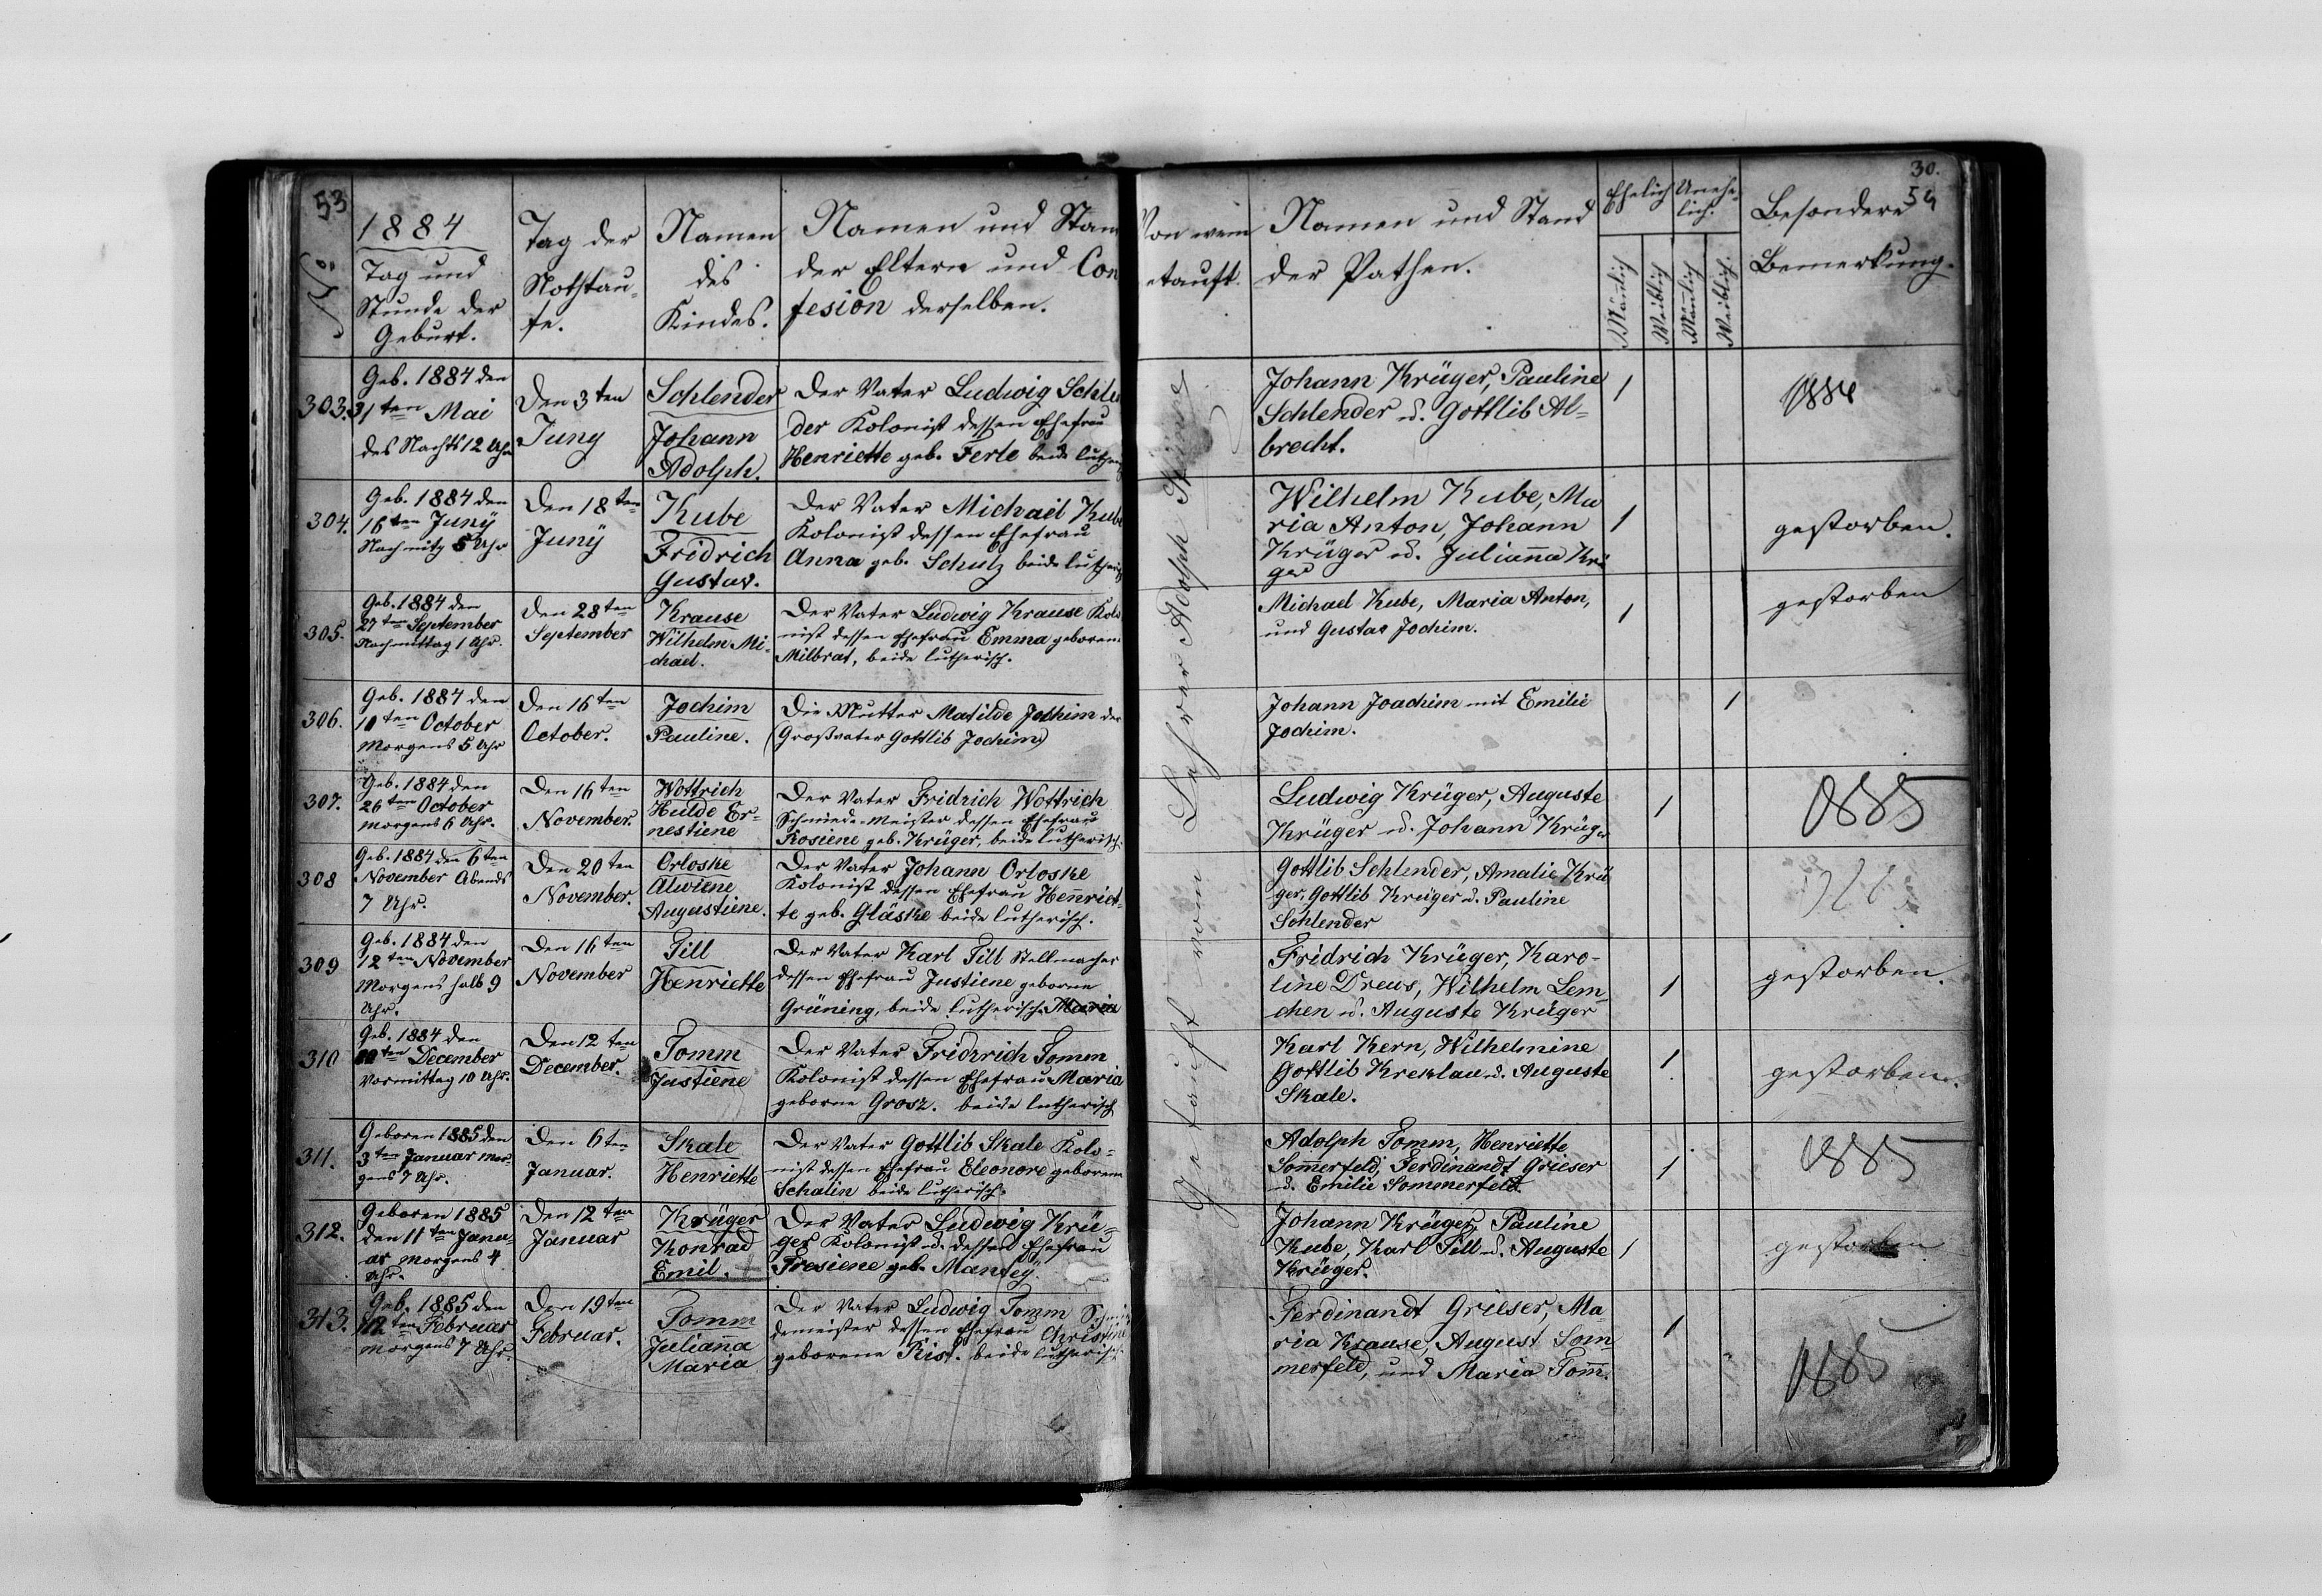 53
1884
Tag und
Stunde der
Geburt.
No.
Tag der
Nothtau-
fe.
Namen
des
Kindes.
Namen und Stan
der Eltern und Con
fesion derselben.
303.
Geb. 1884 den
31ten Mai
des Nachts 12 Uhr
Den 3ten
Juny
Schlender
Johann
Adolph.
Der Vater Ludwig Schle
der Kolonist dessen Ehefrau
Henriette geb. Ferle beide luther
304.
Geb. 1884 den
16ten Juny
Nachmitg 5 Uhr
Den 18ten
Juny
Kube
Fridrich
Gustav.
Der Vater Michael Kube
Kolonist dessen Ehefrau
Anna geb. Schulz beide lutheri
305.
Geb. 1884 den
27ten September
Nachmittag 1 Uhr.
Den 28ten
September
Krause
Wilhelm Mi-
chael.
Der Vater Ludwig Krause Kolo
nist dessen Ehefrau Emma geboren
Milbrat, beide lutherisch.
306.
Geb. 1884 den
10ten October
Morgens 5 Uhr
Den 16ten
October.
Jochim
Pauline.
Die Mutter Matilde Jochim der
(Großvater Gottlib Jochim)
307.
Geb. 1884 den
26ten October
Morgens 6 Uhr.
Den 16ten
November.
Wottrich
Hulde Er-
nestiene
Der Vater Fridrich Wottrich
Schmiede-Meister dessen Ehefrau
Rosiene geb. Krüger, beide lutherisch.
308
Geb. 1884 den 6ten
November Abends
7 Uhr.
Den 20ten
November.
Orloske
Alwiene
Augustiene.
Der Vater Johann Orloske
Kolonist dessen Ehefrau Henriet-
te geb. Gläske beide lutherisch.
309
Geb. 1884 den
12ten November
Morgens halb 9
Uhr.
Den 16ten
November
Till
Henriette
Der Vater Karl Till Stellmacher
dessen Ehefrau Justiene geborne
Grüning, beide lutherisch. Maria
310
Geb. 1884 den
ten December
Vormittag 10 Uhr.
Den 12ten
December.
Tomm
Justiene
Der Vater Fridrich Tomm
Kolonist dessen Ehefrau Maria
geborne Grosz. beide lutherisch
311.
Geboren 1885 den
3ten Januar Mor-
gens 7 Uhr.
Den 6ten
Januar.
Skale
Henriette
Der Vater Gottlib Skale Kolo-
nist dessen Ehefrau Eleonore geborene
Schalin beide lutherisch.
312.
Geboren 1885
den 11ten Janu-
ar Morgens 4
Uhr.
Den 12ten
Januar
Krüger
Konrad
Emil.
Der Vater Ludwig Krü-
ger Kolonist u. dessen Ehefrau
Fresiene geb. Mandey.
313.
Geb. 1885 den
12ten Februar
Morgens 7 Uhr.
Den 19ten
Februar.
Tomm
Julianna
Maria
Der Vater Ludwig Tomm Schmie
demeister dessen Ehefrau Christine
geborene Rist. beide lutherisch.
30.
54
Von wem
etauft.
Namen und Stand
der Pathen.
Ehelich
Unehe-
lich.
Mänlich
Weiblich
Mänlich
Weiblich.
Besondere
Bemerkung.
Getauft vom Lehrer Adolph
Johann Krüger, Pauline
Schlender u. Gottlib Al-
brecht.
1
1884
Wilhelm Kube, Ma
ria Anton, Johann
Krüger u. Julianna Krü
ger
1
gestorben.
Michael Kube, Maria Anton,
und Gustav Jochim.
1
gestorben
Johann Joachim mit Emilie
Jochim.
1
Ludwig Krüger, Auguste
Krüger u. Johann Krüger
1
1885
Gottlib Schlender, Amalie Krü
ger, Gottlib Krüger u. Pauline
Schlender
Fridrich Krüger, Karo-
line Drews, Wilhelm Lem-
chen u. Auguste Krüger
1
gestorben.
Karl Kern, Wilhelmine
Gottlib Kreklau u. Auguste
Skale.
1
gestorben.
Adolph Tomm, Henriette
Sommerfeld, Ferdinandt Grieser
u. Emilie Sommerfeld.
1
1885
Johann Krüger, Pauline
Kube, Karl Till u. Auguste
Krüger.
1
gestorben
Ferdinandt Grieser, Ma-
ria Krause, August Som
merfeld, und Maria Tomm.
1
1885